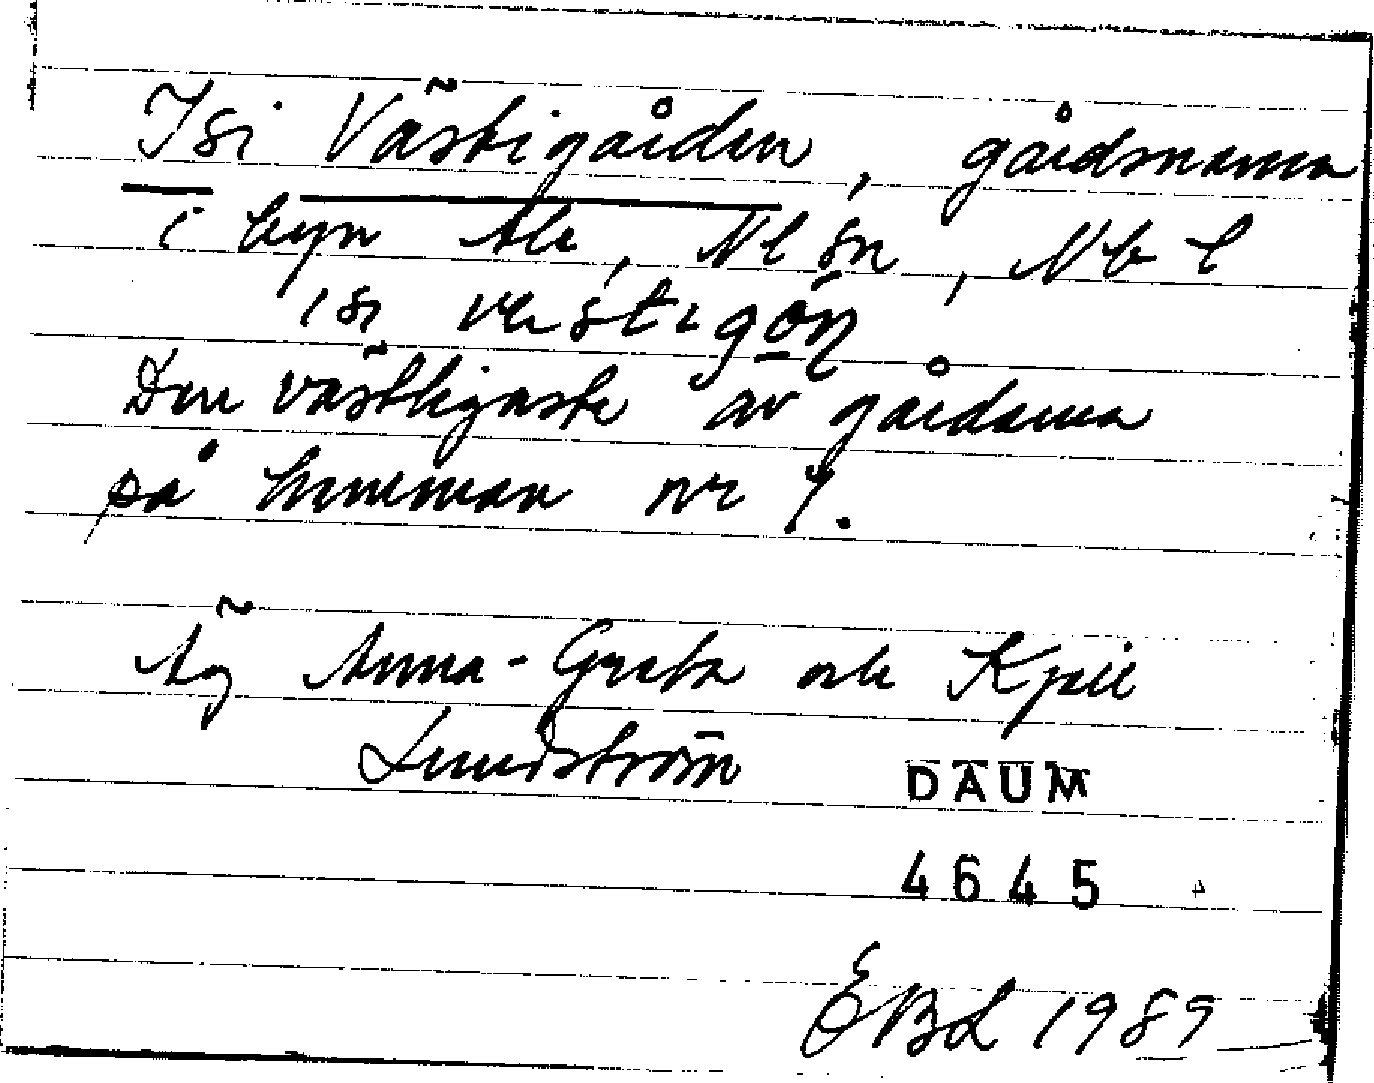 Isi Västigården, gårdsnamn
i byn Ale, Nl sn, Nb l
isi västigōṇ
Den västligaste av gårdarna
på hemman nr 7.
Äg Anna-Greta och Kjell
Lundström
DAUM
4645
EBL 1989